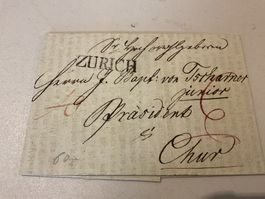 Sr Hochwohlgeboren
ZÜRICH
Herrn J. Bapt. von Tscharner
junior
Präsident
Chur